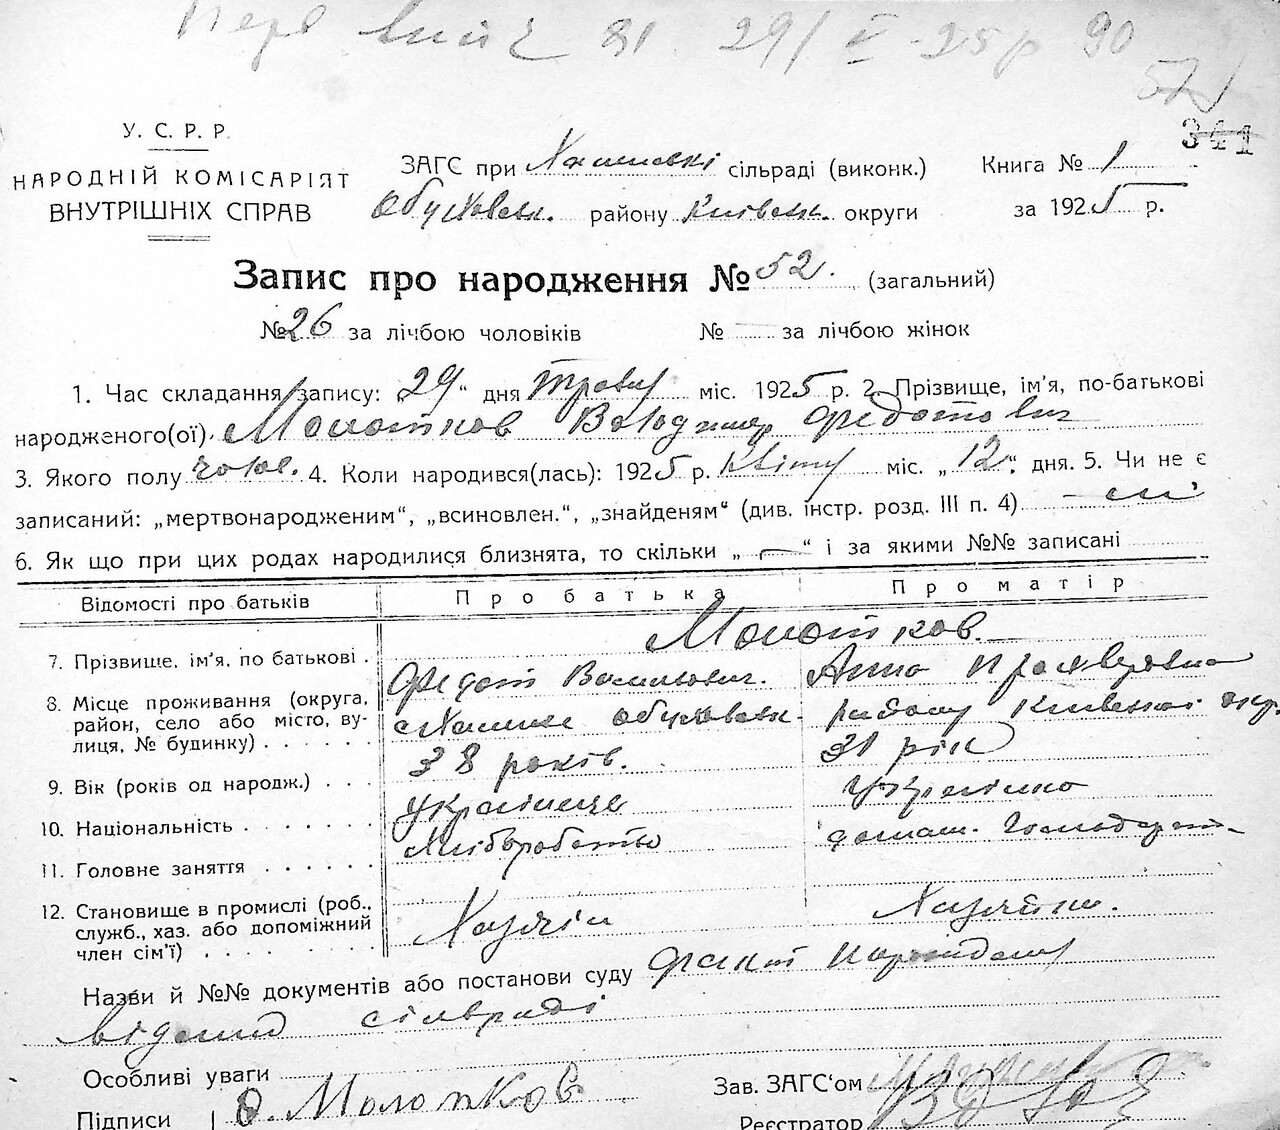 29/V-25р 90
52
У. С. Р. Р. 341
НАРОДНІЙ КОМІСАРІЯТ ЗАГС при сільраді (виконк.) Книга № 1
ВНУТРІШНІХ СПРАВ Обуховськ. району Київськ. округи за 1925 р.
Запис про народження № 52. (загальний)
№ 26 за лічбою чоловіків № — за лічбою жінок
1. Час складання запису: „29“ дня травня міс. 1925 р. 2. Прізвище, ім'я, по-батькові
народженого(ої). Молотков Володимир Федотович
3. Якого полу чолов. 4. Коли народився(лась): 1925 р. Квітня міс. „12“ дня. 5. Чи не є
записаний: „мертвонародженим“, „всиновлен.“, „знайденям“ (див. інстр. розд. III п. 4) — ні
6. Як що при цих родах народилися близнята, то скільки „—“ і за якими №№ записані
Відомості про батьків Про батька Про матір
Молотков
7. Прізвище, ім'я, по батькові . Федот Васильович. Анна
8. Місце проживання (округа,
район, село або місто, вулиця, № будинку) . . . . . . Обуховськ. району Київської окр.
9. Вік (років од народж.) . . . 38 років. 31 рік
10. Національність . . . . . . . українець Українка
11. Головне заняття . . . . . . Хліборобство домаш. господарст.
12. Становище в промислі (роб.,
служб., хаз. або допоміжний
член сім'ї) . . . . . Хазяїн Хазяйка.
Назви й №№ документів або постанови суду факт народження
відомий сільраді
Особливі уваги
Зав. ЗАГС'ом
Підписи Ф. Молотков
Реєстратор